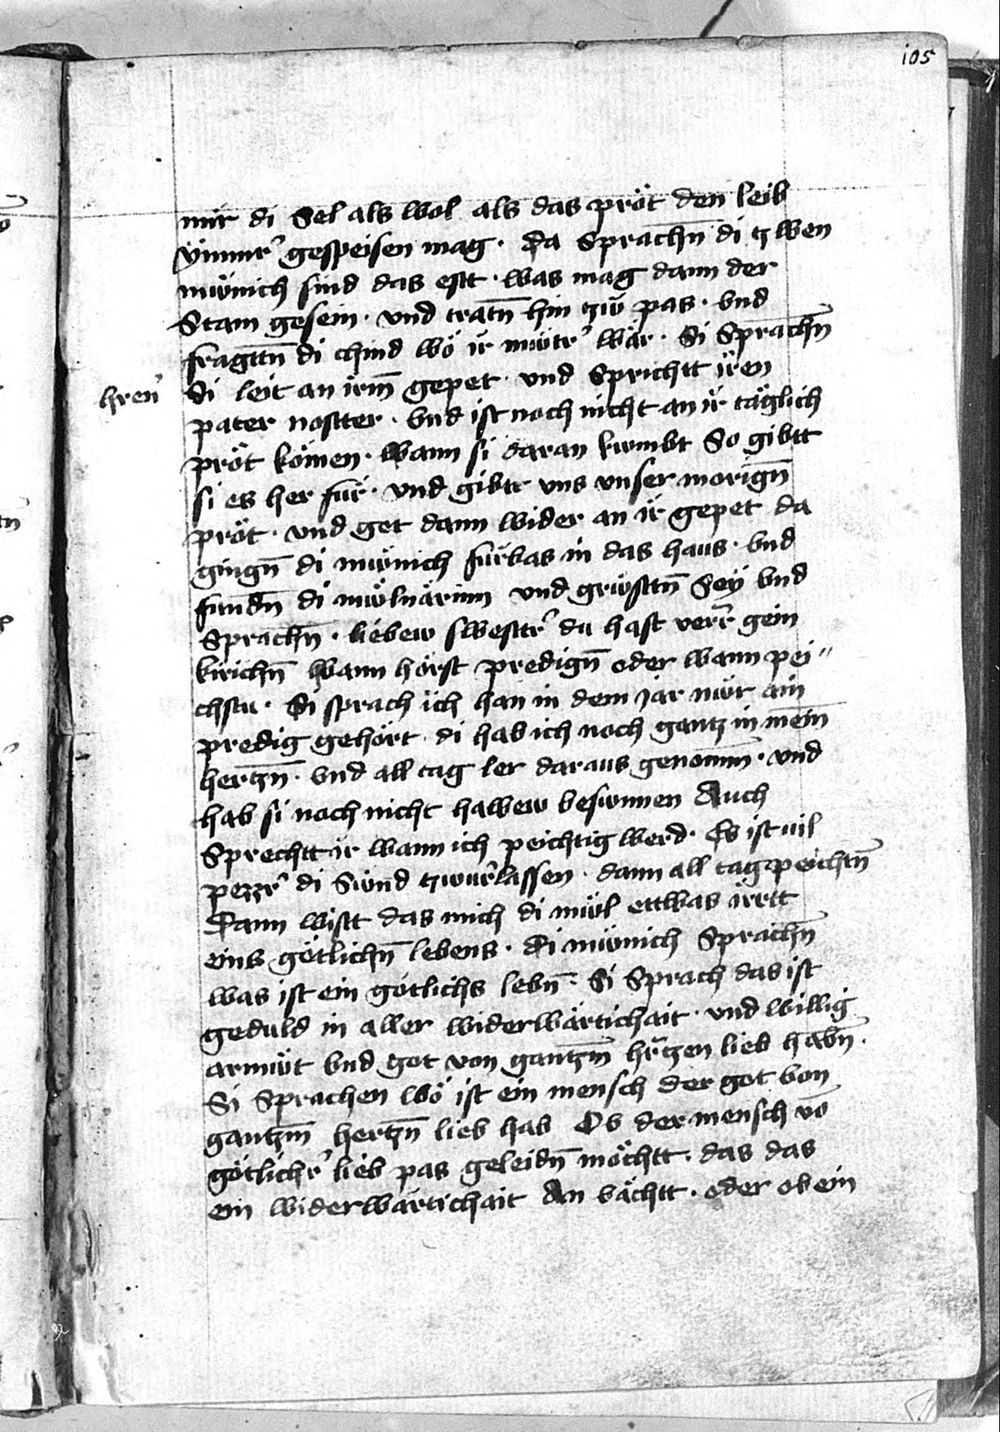 105
mir di Sel als wol als das pröt den leib
ÿmmer gespeisen mag · Da Sprachn̄ di zwen
münich sind das estt · was mag dann der
Stam gesein · vnd tratn̄ hin zw̄ pas · vnd
fragttn̄ di chind wö ir müter wär · Si Sprachn̄
Si leit an irm̄ gepet · vnd Sprichtt iren
pater nostter · vnd ist noch nicht an ir täglich
pröt kömen · Wann si daran kumbt So gibtt
si es her für · vnd gibtt vns vnser morign̄
pröt · vnd get dann wider an ir gepet da
gingn̄ di münich fürbas in das haus · vnd
fundn̄ di mülnärinn vnd grüsttn̄ Seÿ vnd
Sprachn̄ · liebew swestter du hast verr gein
kirichn̄ Wann hörst predign̄ oder wann pei〃
chstu · Si sprach ich han in dem jar nür ain
predig gehört · di hab ich noch gantz in mein̄
hertzn̄ · vnd all tag ler daraus genomm̄ · vnd
hab si noch nicht halbew besunnen Auch
Sprechtt ir wann ich peichtig werd · Es ist vil
pezzer di Sünd zwuerlassen · dann all tag peichtn̄
Dann wistt das mich di mül ettwas irrtt
eins götlichn̄ lebens · Di münich Sprachn̄
was ist ein götlichs lebn̄ · Si Sprach das ist
geduld in aller widerwärtichait · vnd willig
armüt vnd got von gantzm̄ hertzen lieb habn̄ ·
Si Sprachen wö ist ein mensch der got von
gantzm̄ hertzn̄ lieb hab Ob der mensch vō
götlicher lieb pas geleidn̄ möchtt · das das
ein widerwärtichait An vächtt · oder ob ein